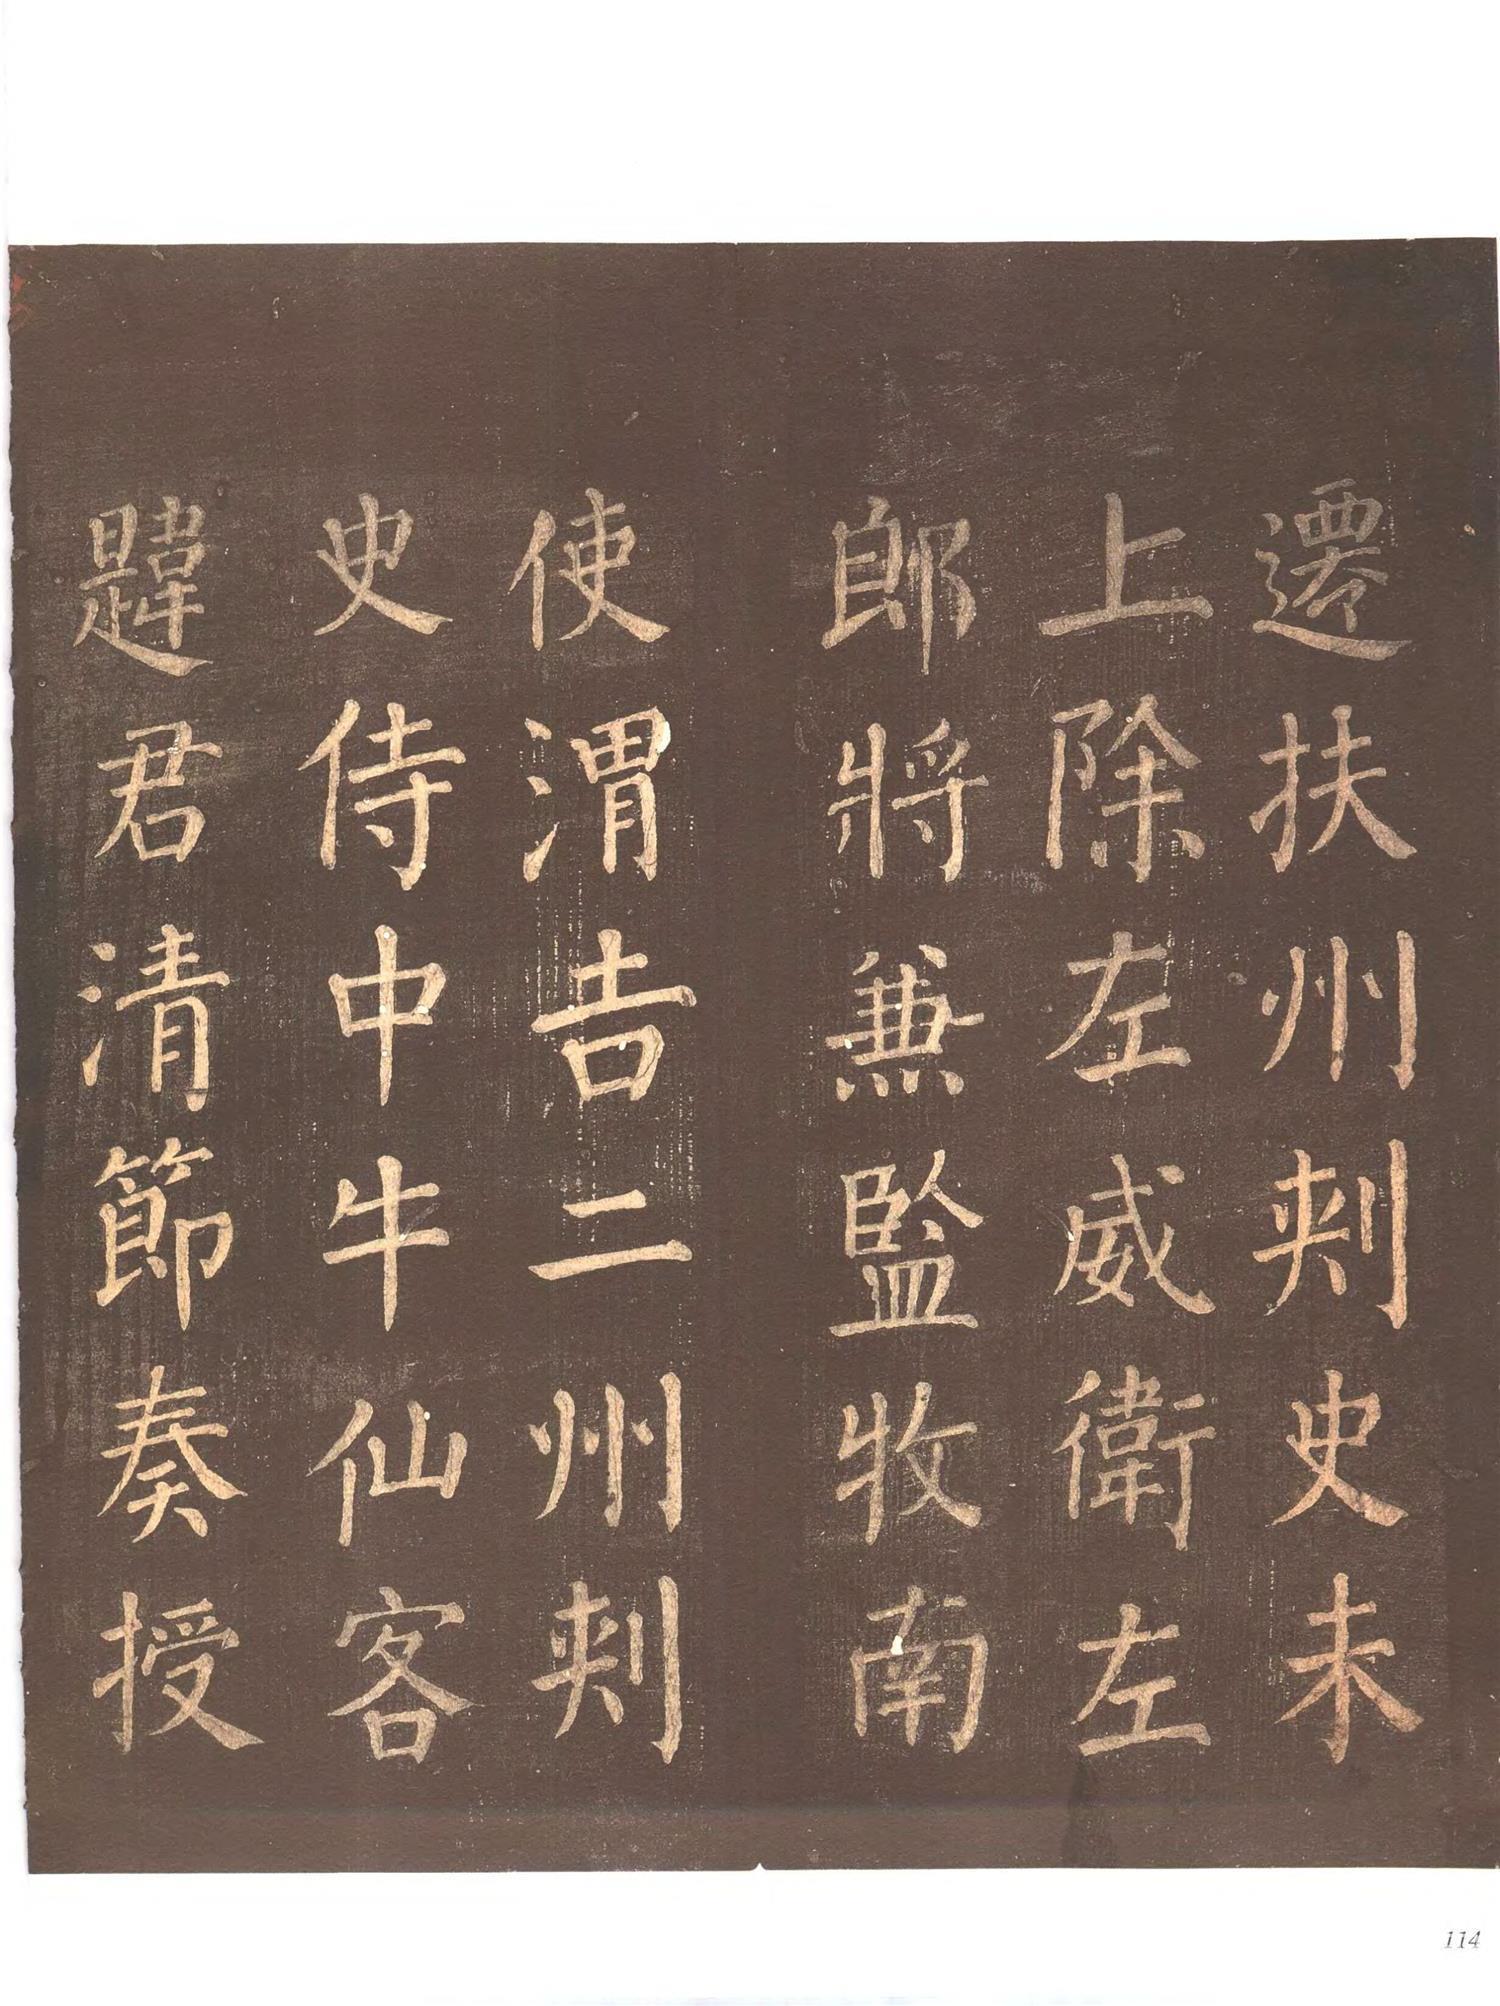 遷扶州刾史未
上除左威衛左
郎將兼監牧南
使渭吉二州刾
史侍中牛仙客
韙君清節奏授
114